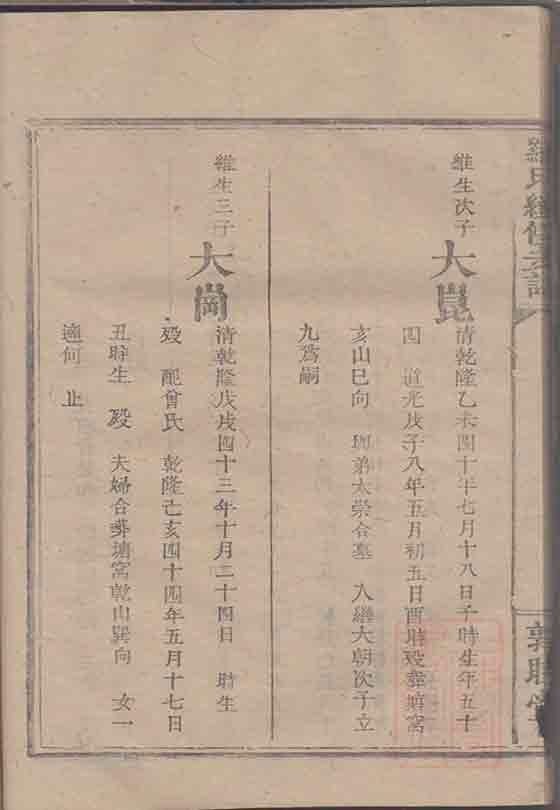 羅氏續修支譜
維生次子
大崑
清乾隆乙未四十年七月十八日子時生年五十
四 道光戊子八年五月初五日酉時歿葬塘窩
亥山巳向 與弟大榮合墓 入繼大朝次子立
九爲嗣
維生三子
大崗
清乾隆戊戌四十三年十月二十四日 時生
歿 配曾氏 乾隆己亥四十四年五月十七日
丑時生 歿 夫婦合葬塘窩乾山巽向 女一
適何 止